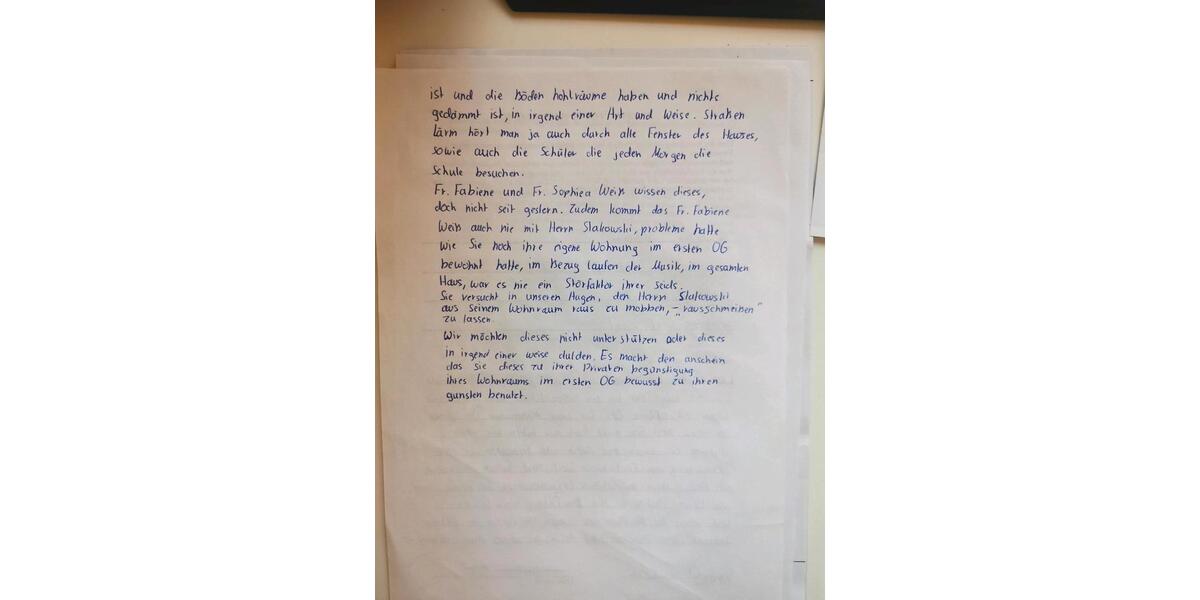 ist und die Böden hohlräume haben und nichts
gedämmt ist, in irgend einer Art und Weise. Straßen
Lärm hört man ja auch durch alle Fenster des Hauses,
sowie auch die Schüler die jeden Morgen die
Schule besuchen.
Fr. Fabiene und Fr. Sophiea Weiß wissen dieses,
doch nicht seit gestern. Zudem kommt das Fr. Fabiene
Weiß auch nie mit Herrn Slakowski, probleme hatte
wie Sie noch ihre eigene Wohnung im ersten OG
bewohnt hatte, im Bezug laufen der Musik, im gesamten
Haus, war es nie ein Storfaktor ihrer seids.
Sie versucht in unseren Augen, den Herrn Slakowski
aus seinem Wohnraum raus zu mobben, – „rausschmeißen"
zu lassen.
Wir möchten dieses nicht unterstützen oder dieses
in irgend einer weise dulden. Es macht den anschein
das sie dieses zu ihrer Privaten begünstigung
ihres Wohnraums im ersten OG bewusst zu ihren
gunsten benutzt.